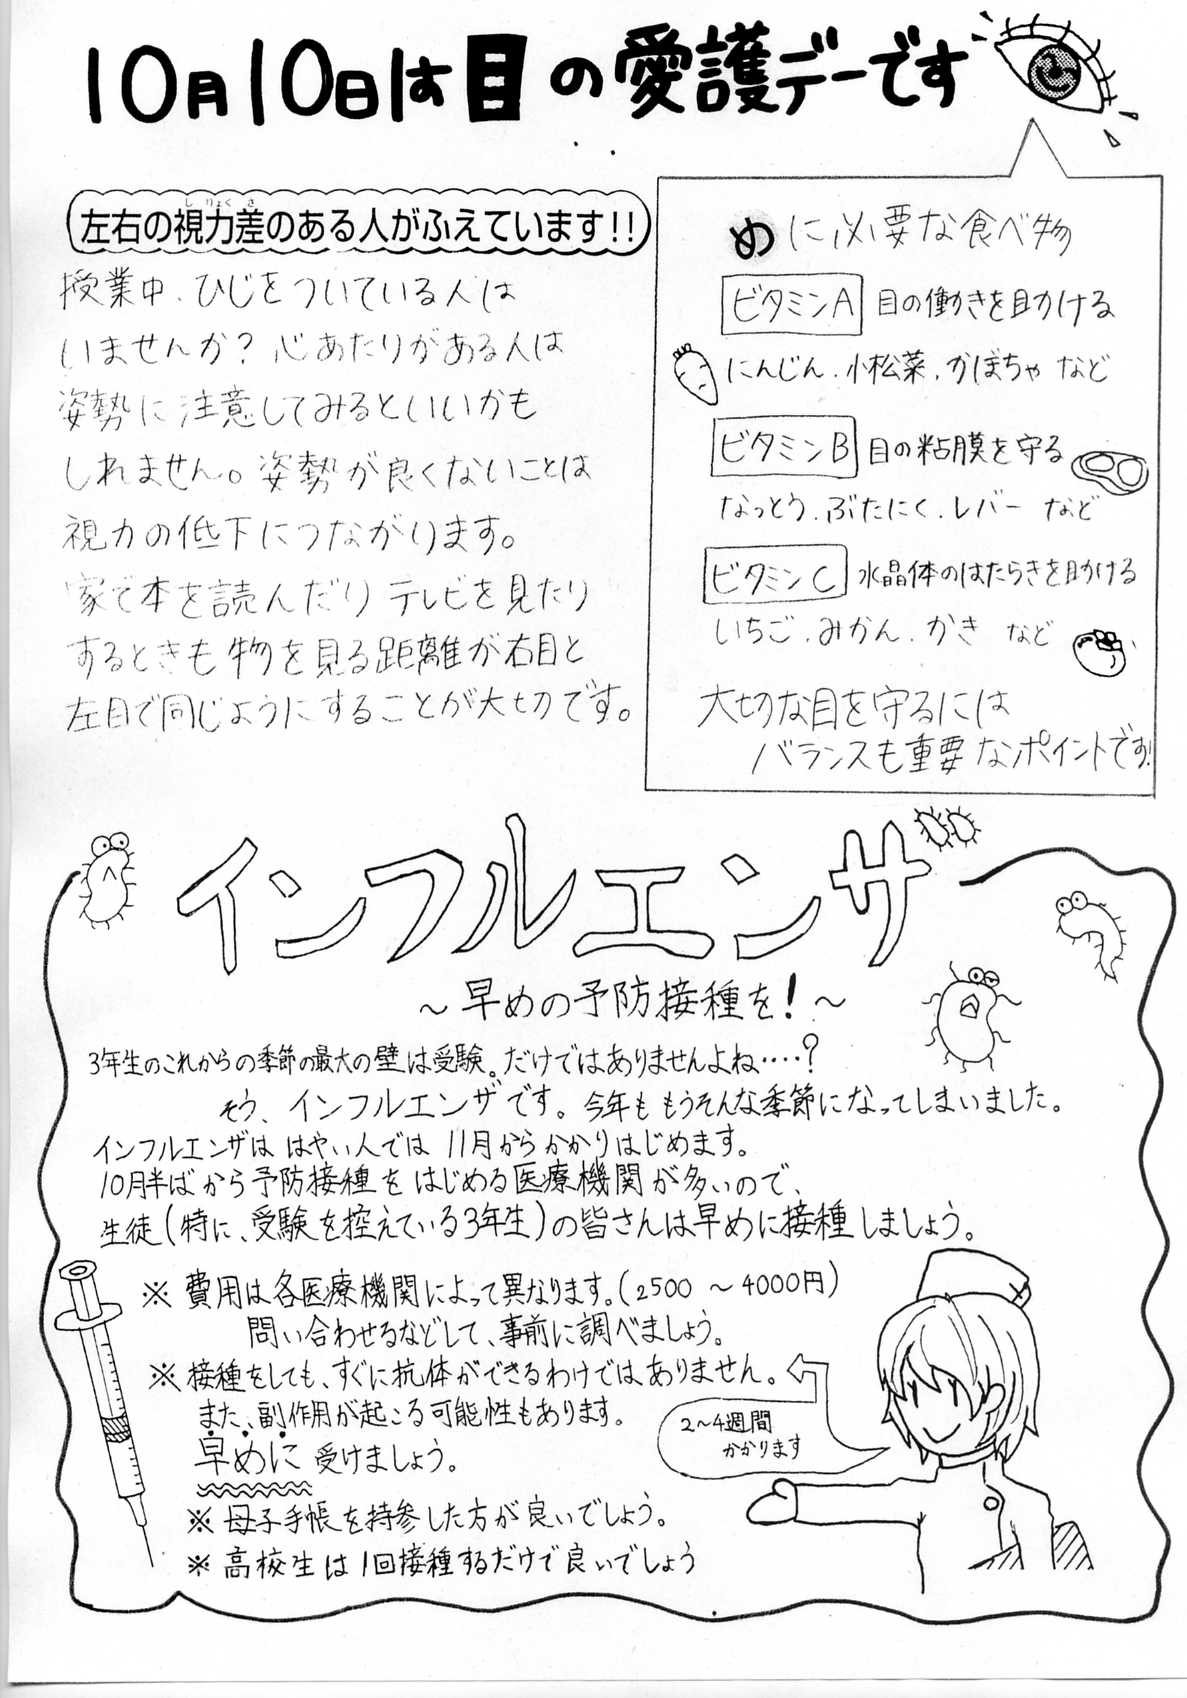 10月10日は目の愛護デーです
左右の視力差のある人がふえています!!
授業中、ひじをついている人は
いませんか？心あたりがある人は
姿勢に注意してみるといいかも
しれません。姿勢が良くないことは
視力の低下につながります。
家で本を読んだりテレビを見たり
するときも物を見る距離が右目と
左目で同じようにすることが大切です。
めに必要な食べ物
ビタミンA 目の働きを助ける
にんじん、小松菜、かぼちゃ など
ビタミンB 目の粘膜を守る
なっとう、ぶたにく、レバー など
ビタミンC 水晶体のはたらきを助ける
いちご、みかん、かき など
大切な目を守るには
バランスも重要なポイントです!
インフルエンザ
～早めの予防接種を！～
3年生のこれからの季節の最大の壁は受験。だけではありませんよね‥‥？
そう、インフルエンザです。今年ももうそんな季節になってしまいました。
インフルエンザははやい人では11月からかかりはじめます。
10月半ばから予防接種をはじめる医療機関が多いので、
生徒(特に、受験を控えている3年生)の皆さんは早めに接種しましょう。
※費用は各医療機関によって異なります。(2500～4000円)
問い合わせるなどして、事前に調べましょう。
※接種をしても、すぐに抗体ができるわけではありません。
また、副作用が起こる可能性もあります。
早めに受けましょう。
2～4週間
かかります
※母子手帳を持参した方が良いでしょう。
※高校生は1回接種するだけで良いでしょう